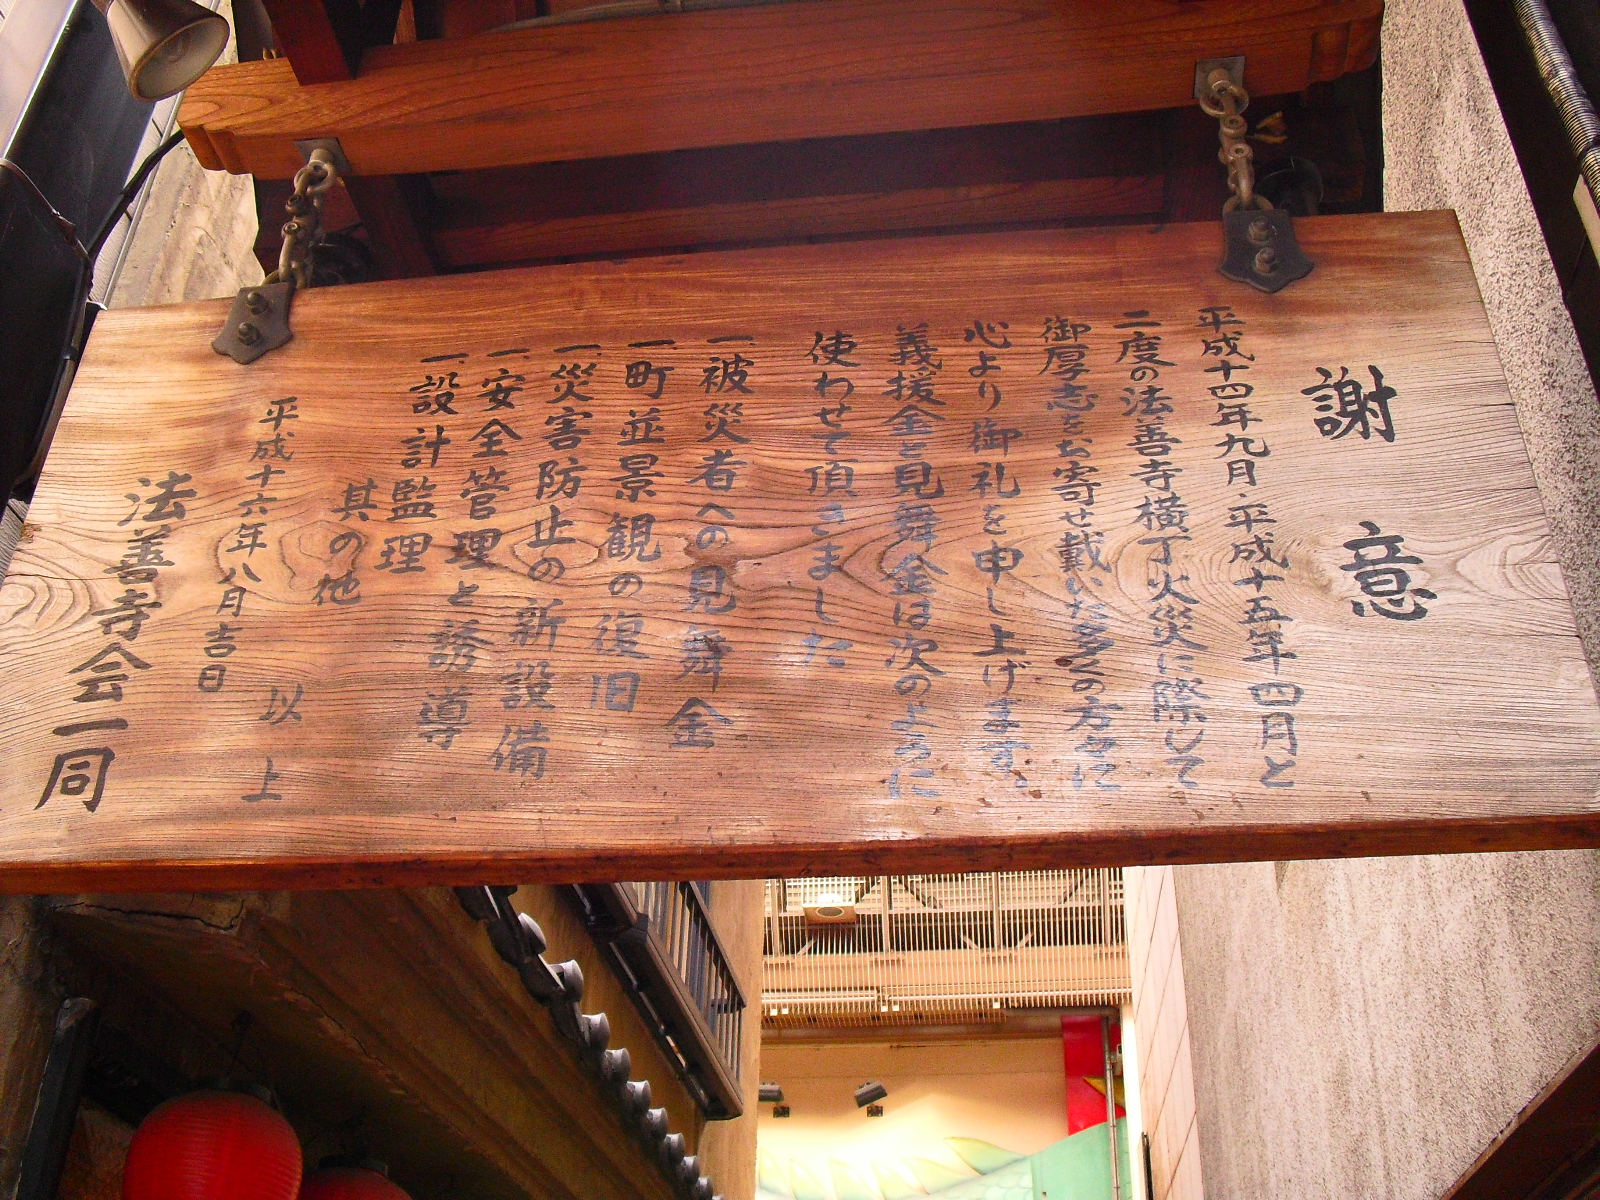 謝意
平成十四年九月・平成十五年四月と
二度の法善寺横丁火災に際して
御厚志をお寄せ戴いた多くの方々に
心より御礼を申し上げます。
義援金と見舞金は次のように
使わせて頂きました
一被災者への見舞金
一町並景観の復旧
一災害防止の新設備
一安全管理と誘導
一設計監理
其の他
以上
平成十六年八月吉日
法善寺会一同